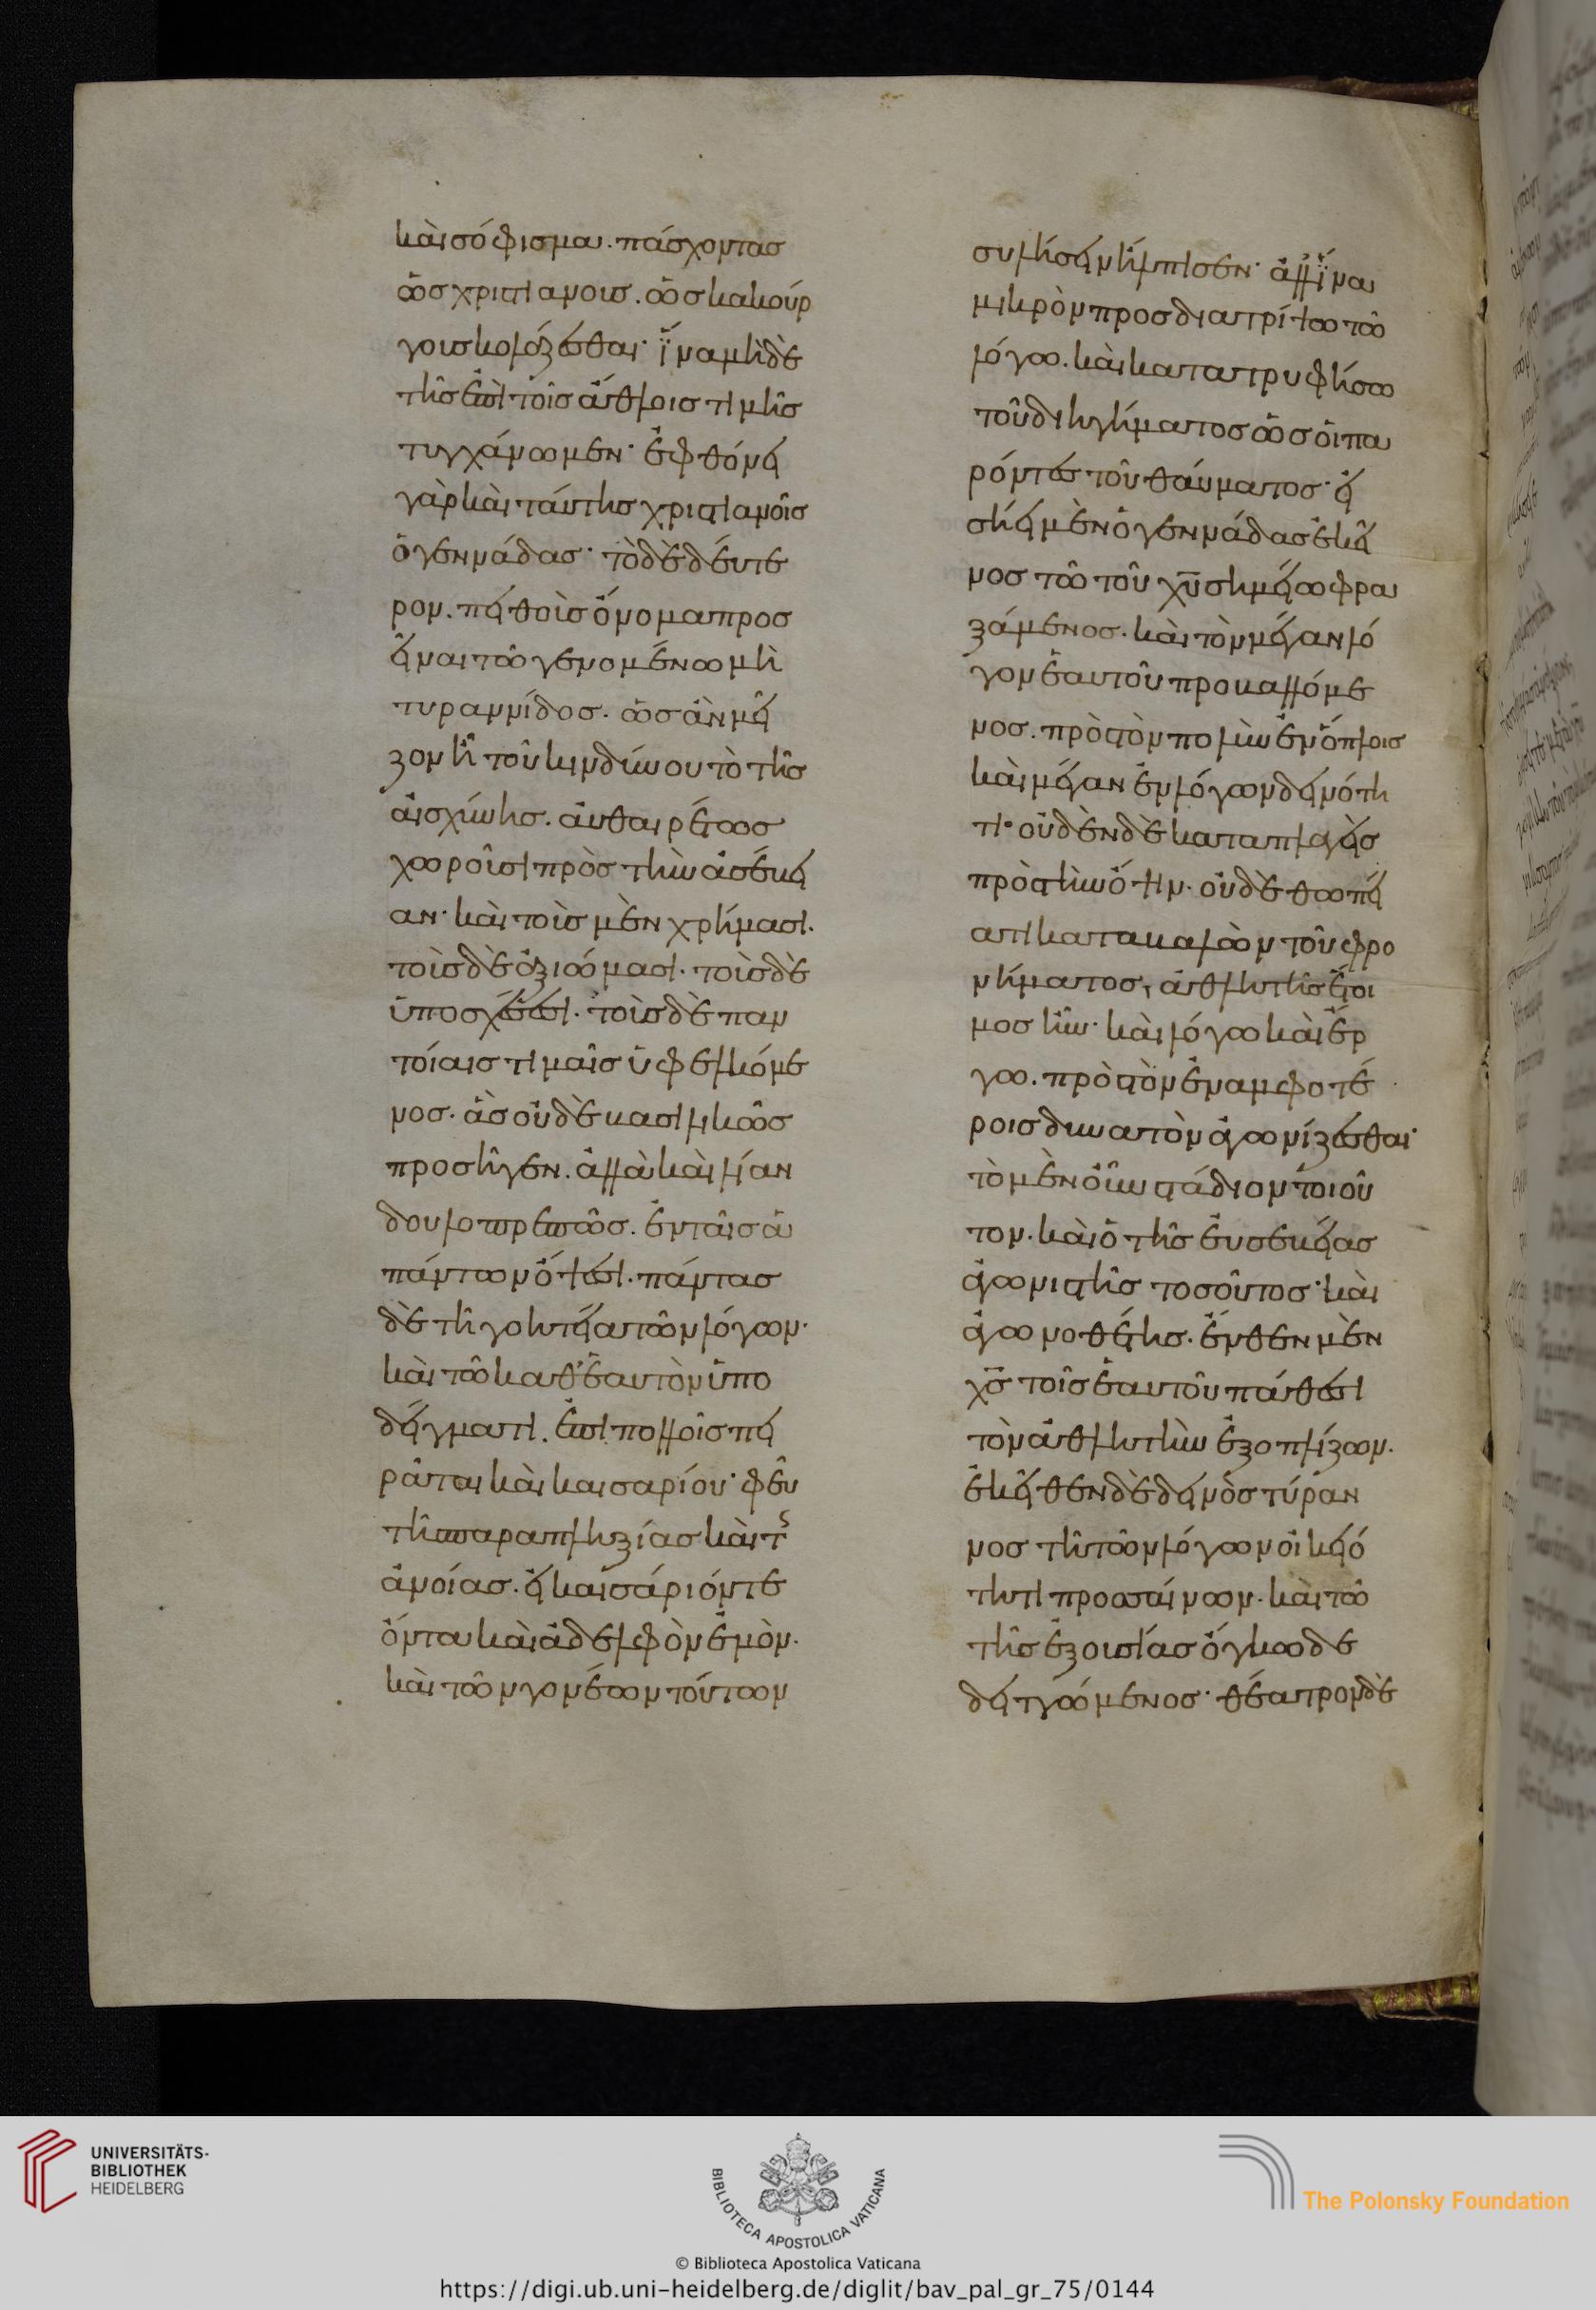 καὶ σόφισμα. πάσχοντας
ὡς χριστιανοις. ὡς κακούρ
γοις κολάζεσθαι· ἵνα μὴ δὲ
τῆς ἐπὶ τοῖς ἄθλοις τιμῆς
τυγχάνωμεν· ἐφθόνει
γὰρ καὶ ταύτης χριστιανοῖς
ὁ γεννάδας· τὸ δὲ δέυτε
ρον. πειθοῖς ὄνομα προσ
εῖναι τῶ γενομένω μὴ
τυραννίδος. ὡς ἂν μεῖ
ζον ἦ τοῦ κινδύνου τὸ τῆς
αἰσχύνης. αὐθαιρέτως
χωροῖσι πρὸς τὴν ἀσέβει
αν· καὶ τοῖς μὲν χρήμασι.
τοῖς δὲ ἀξιώμασι. τοῖς δὲ
ὑποσχέσεσι. τοῖς δὲ παν
τοίαις τιμαῖς ὑφελκόμε
νος. ἃς οὐδὲ βασιλικῶς
προσῆγεν. ἀλλὰ καὶ λίαν
δουλοπρεπῶς. ἐν ταῖς ἁ
πάντων ὄψεσι. πάντας
δὲ τῆ γοητεία τῶν λόγων·
καὶ τῶ καθ' ἑαυτὸν ὑπο
δείγματι. ἐπὶ πολλοῖς πει
ρᾶται καὶ καισαρίου· φεῦ
τῆς παραπληξίας καὶ τῆς
ἀνοίας. εἰ καισάριόν τε
ὄντα καὶ ἀδελφὸν ἐμὸν.
καὶ τῶν γονέων τούτων
συλήσειν ἤλπισεν· ἀλλ' ἵνα
μικρὸν προσδιατρίψω τῶ
λόγω. καὶ κατατρυφήσω
τοῦ διηγήματος ὡς οἱ πα
ρόντες τοῦ θαύματος· εἰ
σήει μὲν ὁ γεννάδας ἐκεῖ
νος τῶ τοῦ χυ σημείω φρα
ξάμενος. καὶ τὸν μέγαν λό
γον ἑαυτοῦ προβαλλόμε
νος. πρὸς τὸν πολὺν ἐν ὅπλοις
καὶ μέγαν ἐν λόγων δεινότη
τι· οὐδὲν δὲ καταπλαγεὶς
πρὸς τὴν ὄψιν. οὐδὲ θωπεί
α τι καταβαλὼν τοῦ φρο
νήματος, ἀθλητὴς ἕτοι
μος ἦν· καὶ λόγω καὶ ἔρ
γω. πρὸς τὸν ἐν ἀμφοτέ
ροις δυνατὸν ἀγωνίζεσθαι·
τὸ μὲν οὖν στάδιον τοιοῦ
τον. καὶ ὁ τῆς ἐυσεβείας
ἀγωνιστὴς τοσοῦτος· καὶ
ἀγωνοθέτης. ἔνθεν μὲν
χς τοῖς ἑαυτοῦ πάθεσι
τὸν ἀθλητὴν ἐξοπλίζων.
ἐκεῖθεν δὲ δεινὸς τύραν
νος τῆ τῶν λόγων οἰκειό
τητι προσσαίνων. καὶ τῶ
τῆς ἐξουσίας ὄγκω δε
δειττόμενος· θέατρον δὲ
UNIVERSITÄTS-
BIBLIOTHEK
HEIDELBERG
BIBLIOTECA APOSTOLICA VATICANA
© Biblioteca Apostolica Vaticana
The Polonsky Foundation
https://digi.ub.uni-heidelberg.de/diglit/bav_pal_gr_75/0144